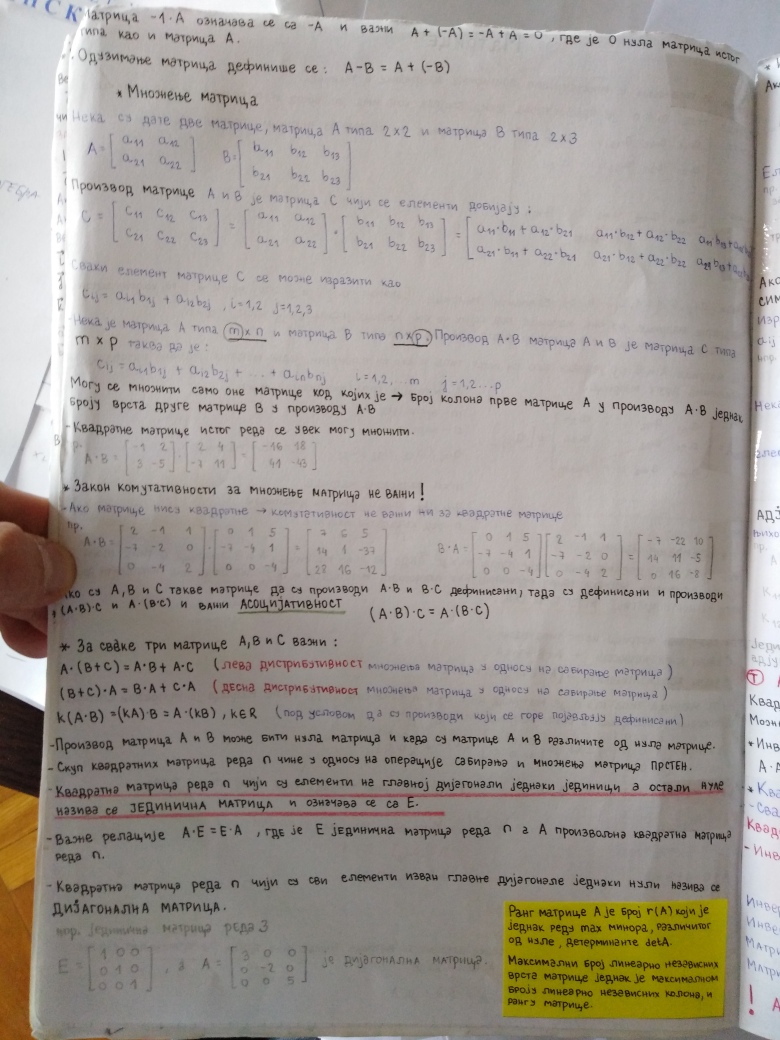 Матрица -1·A означава се са -A и важи A+(-A)=-A+A=0, где је 0 нула матрица истог
типа као и матрица A.
Одузимање матрица дефинише се: A-B = A+(-B)
* Множење матрица
Нека су дате две матрице, матрица A типа 2x2 и матрица B типа 2x3
A = [a11 a12; a21 a22] B = [b11 b12 b13; b21 b22 b23]
Производ матрице A и B је матрица C чији се елементи добијају:
C = [c11 c12 c13; c21 c22 c23] = [a11 a12; a21 a22] · [b11 b12 b13; b21 b22 b23] = [a11·b11+a12·b21 a11·b12+a12·b22; a21·b11+a22·b21 a21·b12+a22·b22
Сваки елемент матрице C се може изразити као
cij = ai1b1j + ai2b2j, i=1,2 j=1,2,3
Нека је матрица A типа m×n и матрица B типа n×p. Производ A·B матрица A и B је матрица C типа
m×p таква да је:
cij = ai1b1j + ai2b2j + ... + ainbnj i=1,2,...m j=1,2...p
Могу се множити само оне матрице код којих је → број колона прве матрице A у производу A·B једнак
броју врста друге матрице B у производу A·B
-Квадратне матрице истог реда се увек могу множити.
A·B = [-1 2; 3 -5] · [2 4; -7 11] = [-16 18; 41 -43]
* Закон комутативности за множење матрица не важи!
-Ако матрице нису квадратне → комутативност не важи ни за квадратне матрице
пр.
A·B = [2 -1 1; -7 -2 0; 0 -4 2] · [0 1 5; -7 -4 1; 0 0 -4] = [7 6 5; 14 1 -37; 28 16 -12] B·A = [0 1 5; -7 -4 1; 0 0 -4] [2 -1 1; -7 -2 0; 0 -4 2] = [-7 -22 10; 14 11 -5; 0 16 -8]
Ако су A, B и C такве матрице да су производи A·B и B·C дефинисани, тада су дефинисани и производи
(A·B)·C и A·(B·C) и важи АСОЦИЈАТИВНОСТ (A·B)·C = A·(B·C)
* За сваке три матрице A, B и C важи:
A·(B+C)=A·B+A·C (лева дистрибутивност множења матрица у односу на сабирање матрица)
(B+C)·A=B·A+C·A (десна дистрибутивност множења матрица у односу на сабирање матрица)
k(A·B)=(kA)·B=A·(kB), k∈R (под условом да су производи који се горе појављују дефинисани)
-Производ матрица A и B може бити нула матрица и када су матрице A и B различите од нула матрице.
- Скуп квадратних матрица реда n чине у односу на операције сабирања и множења матрица ПРСТЕН.
- Квадратна матрица реда n чији су елементи на главној дијагонали једнаки јединици а остали нуле
назива се ЈЕДИНИЧНА МАТРИЦА и означава се са E.
- Важе релације A·E=E·A, где је E јединична матрица реда n a A произвољна квадратна матрица
реда n.
- Квадратна матрица реда n чији су сви елементи изван главне дијагонале једнаки нули назива се
ДИЈАГОНАЛНА МАТРИЦА.
пр. јединична матрица реда 3
E = [1 0 0; 0 1 0; 0 0 1], а A = [3 0 0; 0 -2 0; 0 0 5] је дијагонална матрица.
Ранг матрице A је број r(A) који је
једнак реду max минора, различитог
од нуле, детерминанте detA.
Максимални број линеарно независних
врста матрице једнак је максималном
броју линеарно независних колона, и
рангу матрице.